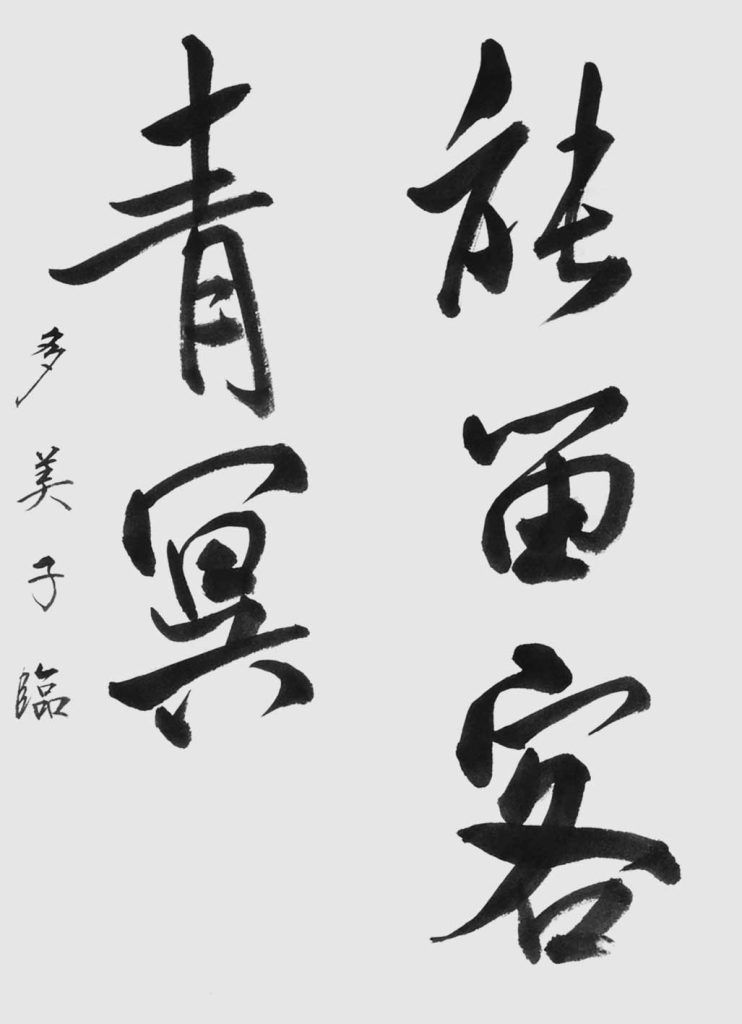 能留客
青冥
多美子臨